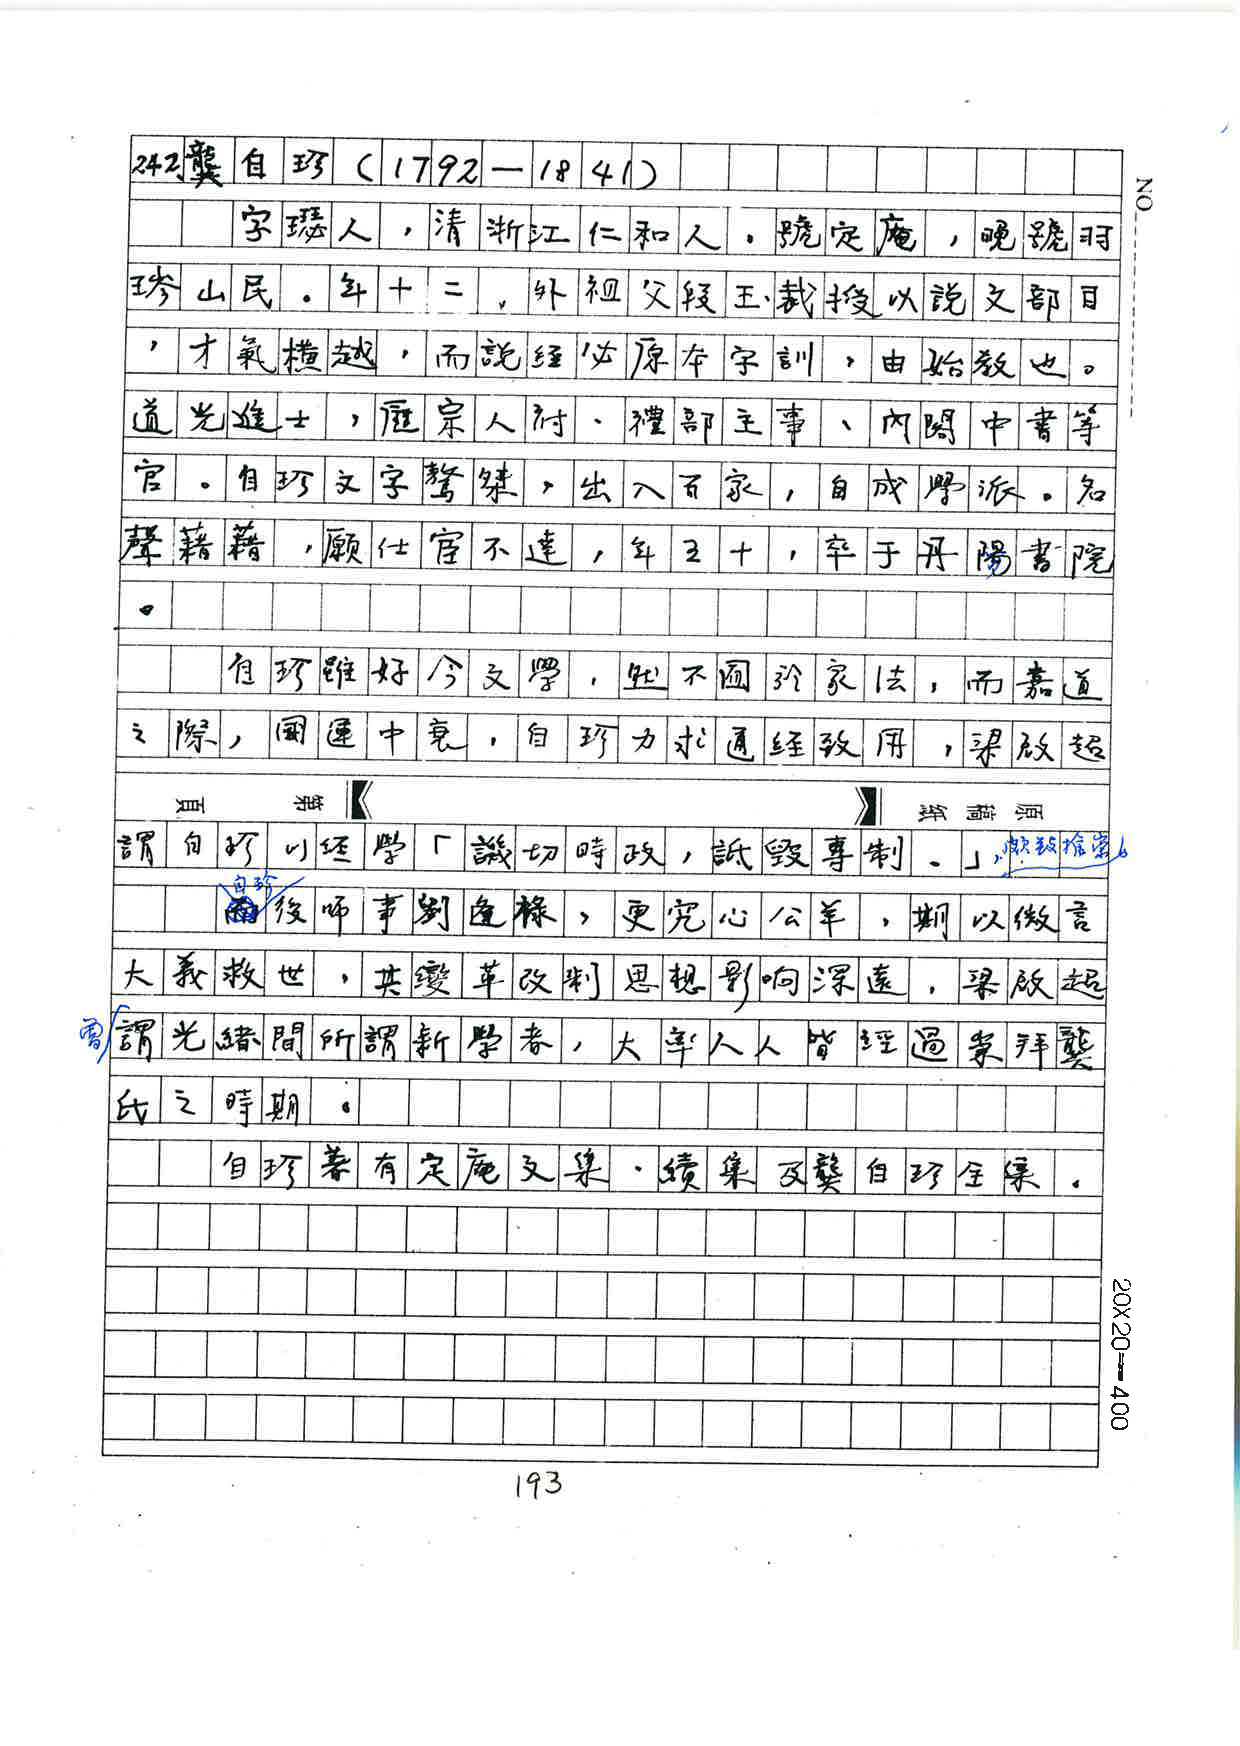 242.龔自珍(1792—1841)
NO
字璱人,清浙江仁和人。號定庵,晚號羽
琌山民。年十二,外祖父段玉裁授以說文部目
,才氣橫越,而說經必原本字訓,由始教也。
道光進士,歷宗人府、禮部主事、內閣中書等
官。自珍文字驁桀,出入百家,自成學派。名
聲藉藉,顧仕宦不達,年五十,卒于丹陽書院
。
自珍雖好今文學,然不囿於家法,而嘉道
之際,國運中衰,自珍力求通經致用,梁啟超
原稿紙 第 頁
謂自珍以經學「譏切時政,詆毀專制。」,
自珍
後師事劉逢祿,更究心公羊,期以微言
大義救世,其變革改制思想影响深遠,梁啟超
曾
謂光緒間所謂新學者,大率人人皆經過崇拜龔
氏之時期。
自珍著有定庵文集、續集及龔自珍全集。
20X20=400
193